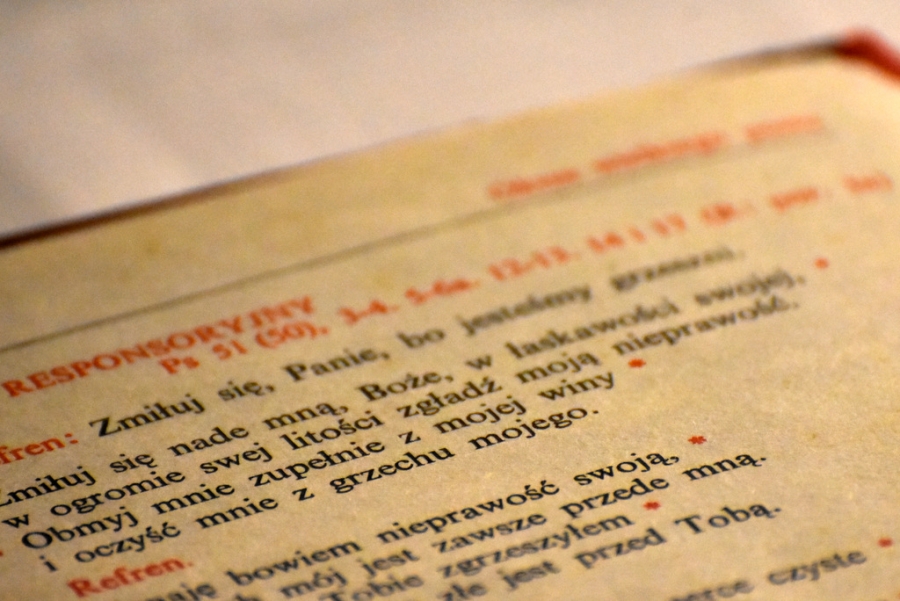 RESPONSORYJNY
Ps 51 (50), 3-4. 5-6a. 12-13. 14 i 17
fren: Zmiłuj się, Panie, bo jesteśmy grzeszni.
Zmiłuj się nade mną, Boże, w łaskawości swojej, *
w ogromie swej litości zgładź moją nieprawość.
Obmyj mnie zupełnie z mojej winy *
i oczyść mnie z grzechu mojego.
Refren.
naję bowiem nieprawość swoją, *
mój jest zawsze przede mną.
Tobie zgrzeszyłem *
złe jest przed Tobą.
serce czyste *